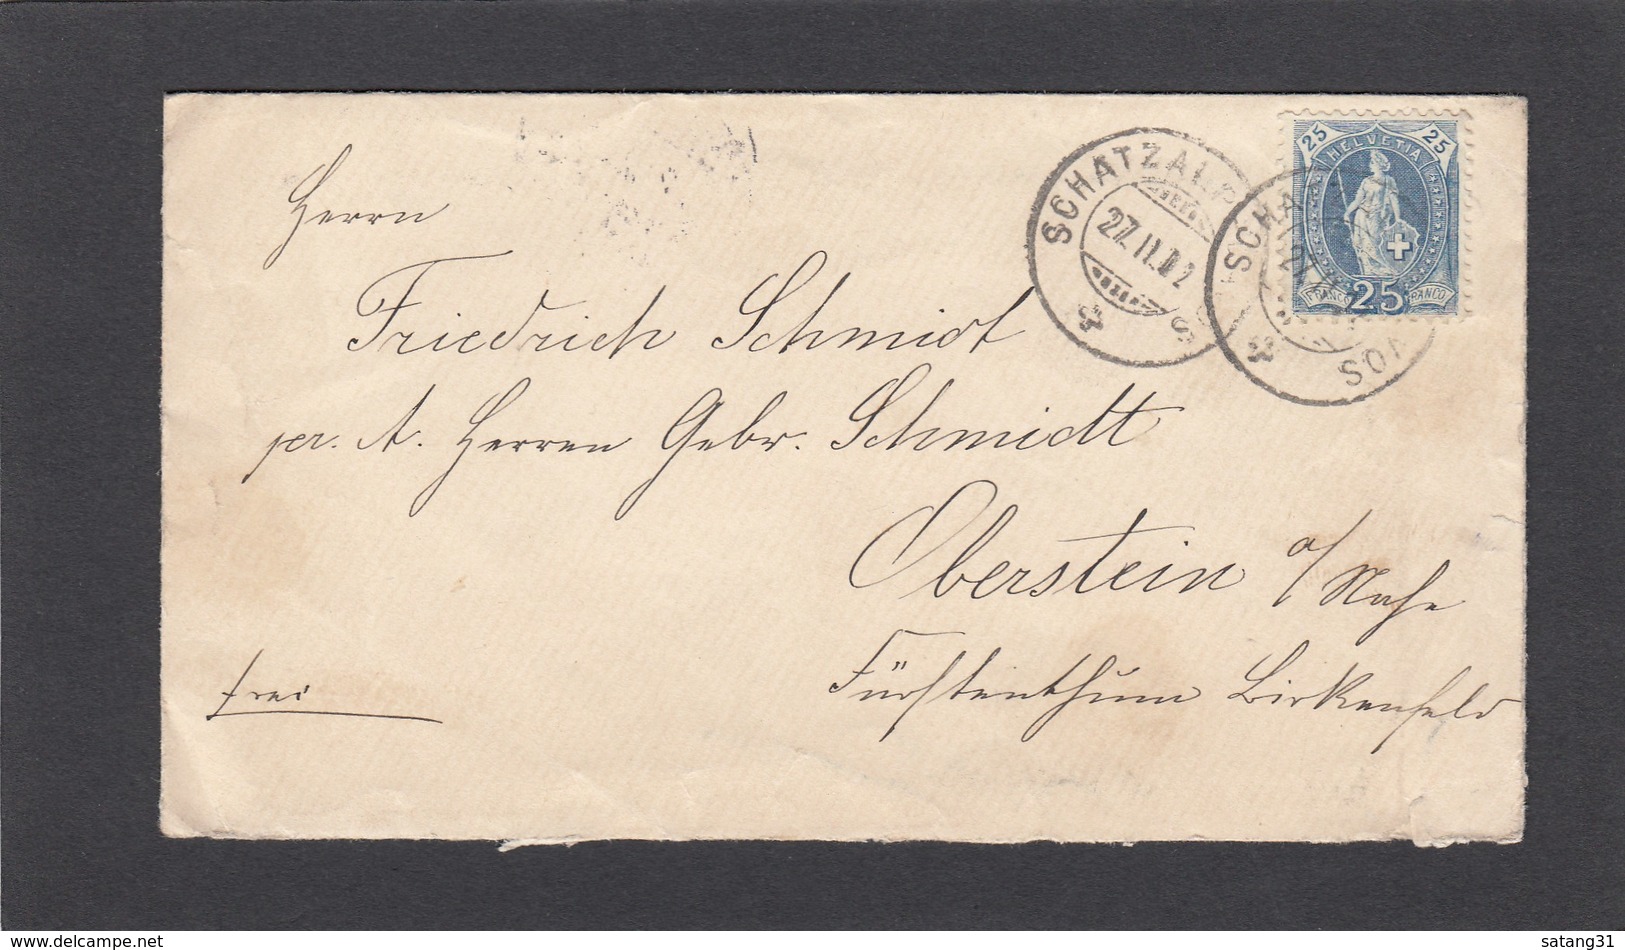 Herrn
Friedrich Schmidt
pr. A. Herren Gebr. Schmidt
Oberstein a/Nahe
Fürstenthum Birkenfeld
frei
SCHATZALP
27.II.02
SCHA
VOS
25 25
HELVETIA
FRANCO 25 FRANCO
www.delcampe.net
satang31